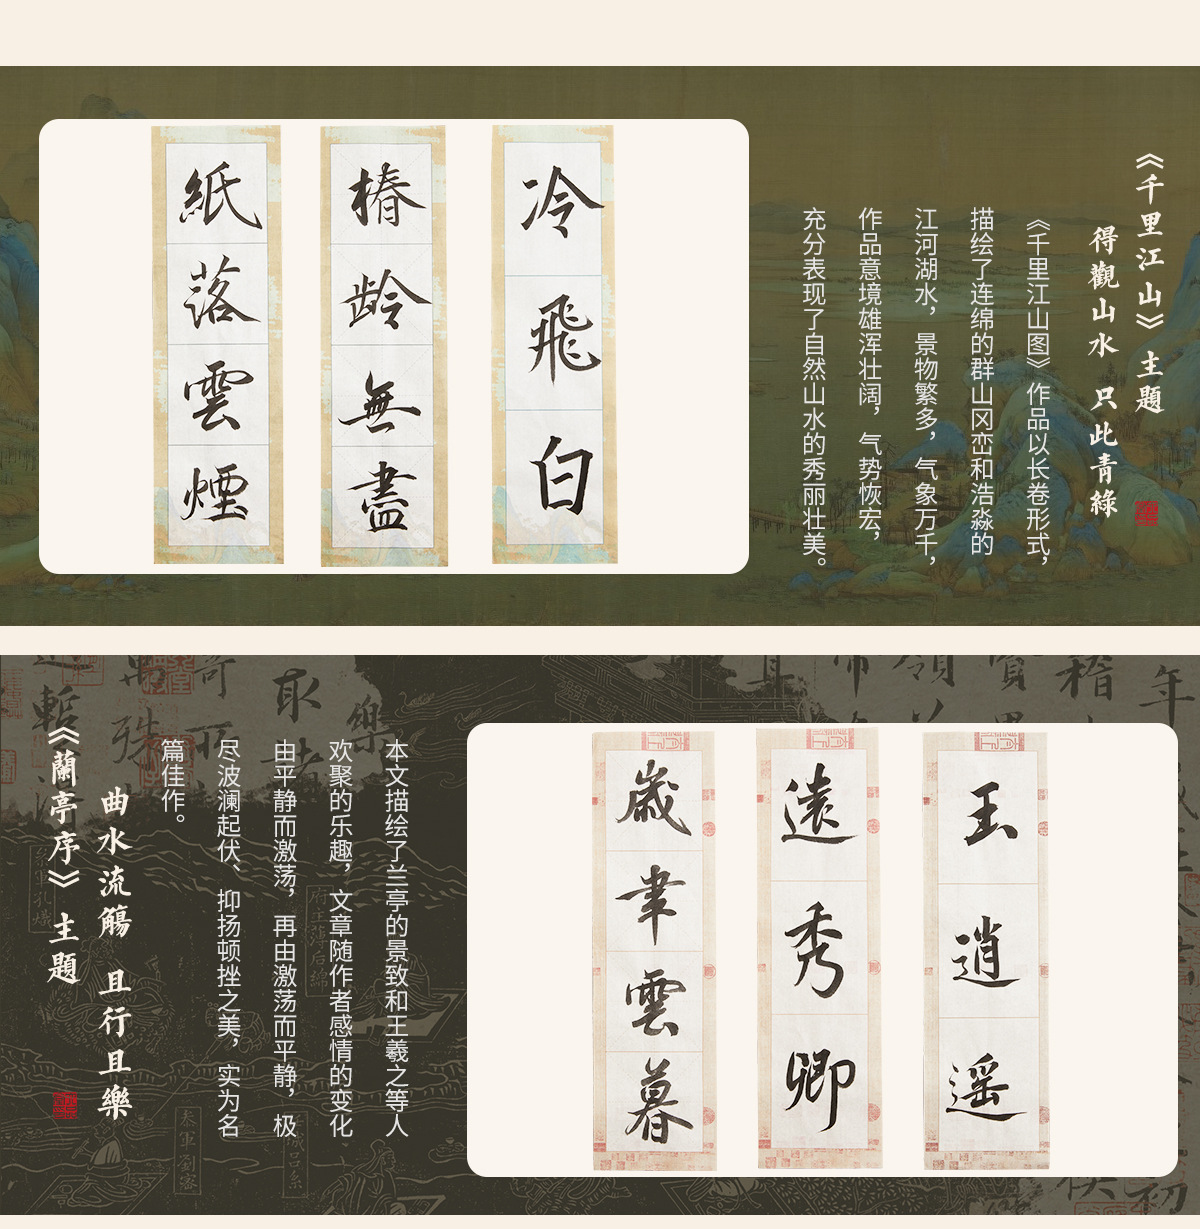 《千里江山》主題
得觀山水 只此青綠
《千里江山图》作品以长卷形式，
描绘了连绵的群山冈峦和浩淼的
江河湖水，景物繁多，气象万千，
作品意境雄浑壮阔，气势恢宏，
充分表现了自然山水的秀丽壮美。
冷飛白
椿龄無盡
紙落雲煙
《蘭亭序》主題
曲水流觴 且行且樂
本文描绘了兰亭的景致和王羲之等人
欢聚的乐趣，文章随作者感情的变化
由平静而激荡，再由激荡而平静，极
尽波澜起伏、抑扬顿挫之美，实为名
篇佳作。
玉逍遥
遠秀卿
歲聿雲暮